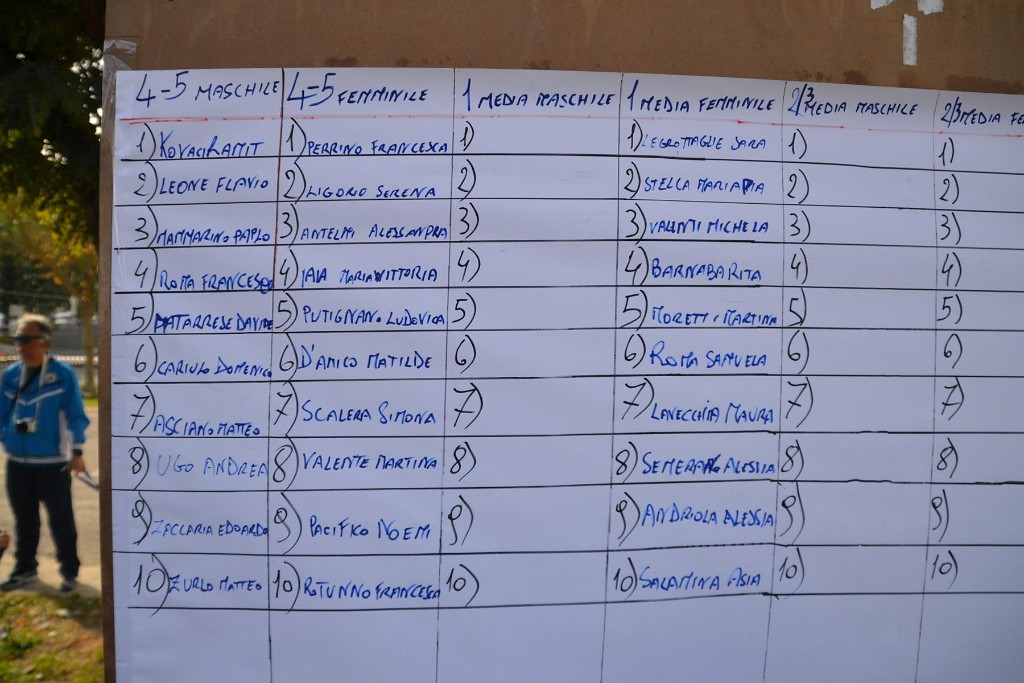 4-5 MASCHILE 4-5 FEMMINILE 1 MEDIA MASCHILE 1 MEDIA FEMMINILE 2/3 MEDIA MASCHILE 2/3 MEDIA FE
1) 1) PERRINO FRANCESCA 1) 1) LEGROTTAGLIE SARA 1) 1)
2) LEONE FLAVIO 2) LIGORIO SERENA 2) 2) STELLA MARIA PIA 2) 2)
3) MAMMARINO 3) ANTELMI ALESSANDRA 3) 3) VALENTI MICHELA 3) 3)
4) ROMA FRANCESCO 4) IAIA MARIA VITTORIA 4) 4) BARNABA RITA 4) 4)
5) TATARRESE DAVIDE 5) PUTIGNANO LUDOVICA 5) 5) MORETTI MARTINA 5) 5)
6) CARIULO DOMENICO 6) D'AMICO MATILDE 6) 6) ROMA SAMUELA 6) 6)
7) ASCIANO MATTEO 7) SCALERA SIMONA 7) 7) LAVECCHIA MAURA 7) 7)
8) UGO ANDREA 8) VALENTE MARTINA 8) 8) SEMERARO ALESSIA 8) 8)
9) ZACCARIA EDOARDO 9) PACIFICO NOEMI 9) 9) ANDRIOLA ALESSIA 9) 9)
10) ZURLO MATTEO 10) ROTUNNO FRANCESCA 10) 10) SALAMINA ASIA 10) 10)